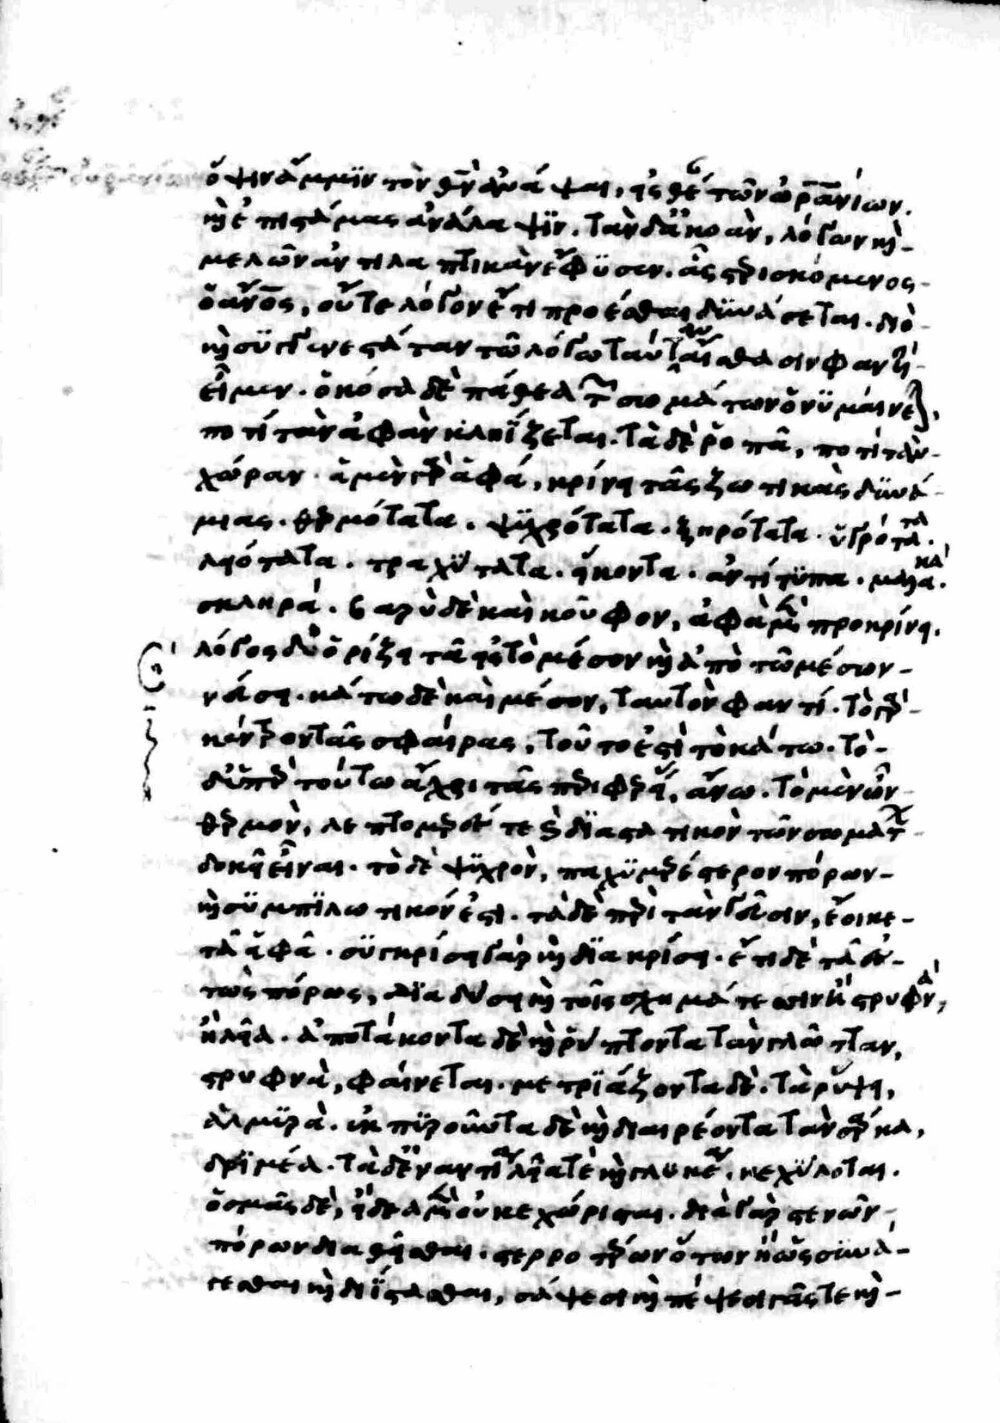 ὄψιν ἄμμιν τὸν θεὸν ἀνάψαι, εἰς θέαν τῶν ὠρανίων.
καὶ ἐπιστάμας ἀνάλαψιν. τὰν δ' ἀκοὰν, λόγων καὶ
μελῶν ἀντιλαπτικὰν ἔφυσεν. ἇς στερισκόμενος
ὁ ἄνθρωπος, οὔτε λόγον ἔτι προέσθαι δυνάσεται. διὸ
καὶ συγγενεστάταν τῶ λόγω ταύταν αἴσθασιν φαντὶ
εἶμεν. ὁκόσα δὲ πάθεα τῶν σωμάτων ὀνυμαίνεται,
ποτὶ τὰν ἁφὰν κληΐζεται. τὰ δὲ ῥοπᾶ, ποτὶ τὰν
χώραν. ἁ μὲν γὰρ ἁφά, κρίνει τὰς ζωτικὰς δυνά-
μιας. θερμότατα. ψυχρότατα. ξηρότατα. ὑγρότατα.
λειότατα. τραχύτατα. εἴκοντα. ἀντίτυπα. μαλακά.
σκληρά. βαρὺ δὲ καὶ κοῦφον, ἁφὰ μὲν προκρίνει.
λόγος δ' ὁρίζει τᾶ εἰς τὸ μέσον καὶ ἀπὸ τῶ μέσω
νεύσει. κάτω δὲ καὶ μέσον, ταυτόν φαντι. τὸ γὰρ
κέντρον τᾶς σφαίρας, τοῦτό ἐστι τὸ κάτω. τὸ
δ' ὑπὲρ τούτω ἄχρι τᾶς περιφερείας, ἄνω. τὸ μὲν ὦν
θερμὸν, λεπτομερές τε καὶ διαστατικὸν τῶν σωμάτων
δοκεῖ εἶναι. τὸ δὲ ψυχρὸν, παχυμερέστερον πόρων
καὶ συμπιλωτικόν ἐστι. τὰ δὲ περὶ τὰν γεῦσιν, ἔοικε
τᾶ ἁφᾶ. συγκρίσει γὰρ καὶ διακρίσει. ἔτι δὲ τᾶ ἐς
τὼς πόρως, διαδύσει καὶ τοῖς σχημάτεσσιν ἢ στρυφνὰ,
ἢ λεῖα. ἀποτάκοντα δὲ καὶ ῥύπτοντα τὰν γλῶτταν,
στρυφνὰ, φαίνεται. μετριάζοντα δὲ τᾶ ῥύψει,
ἁλμυρὰ. ἐκπυροῦντα δὲ καὶ διαιρέοντα τὰν σάρκα,
δριμέα. τὰ δ' ἐναντία, λεῖά τε καὶ γλυκέα, κεχύλωται.
ὀσμᾶς δὲ, εἴδεα μὲν οὐ κεχώρισται. διὰ γὰρ στενῶν
πόρων διαθεῖσθαι. στερροτέρων ὄντων ἢ ὡς συνά-
γεσθαι καὶ διΐστασθαι, σάψεσι καὶ πέψεσι γᾶς τε καὶ